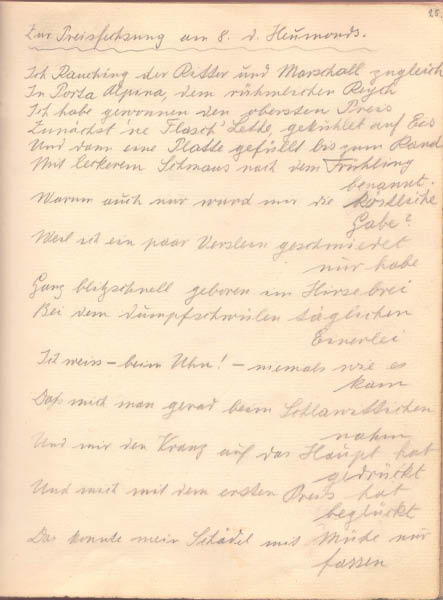 25.
Zur Preisfechsung am 8. d. Heumonds.
Ich Rauching der Ritter und Marschall zugleich
In Porta Alpina, dem rühmlichen Reych
Ich habe gewonnen den obersten Preis
Zunächst 'ne Flasch' Lethe, gekühlet auf Eis
Und dann eine Platte gefüllt bis zum Rand
Mit leckerem Schmaus nach dem Frühling
benannt.
Warum auch nur ward mir die köstliche
Gabe?
Weil ich ein paar Verslein geschmiedet
nur habe
Ganz blitzschnell geboren im Hirsebrei
Bei dem dumpfschwülen täglichen
Einerlei
Ich weiss – beim Uhu! – niemals wie es
kam
Dass mich man gerad beim
nahm
Und mir den Kranz auf das Haupt hat
gedrückt
Und mich mit dem ersten Preis hat
beglückt
Das konnte mein Schädel mit Mühe nur
fassen